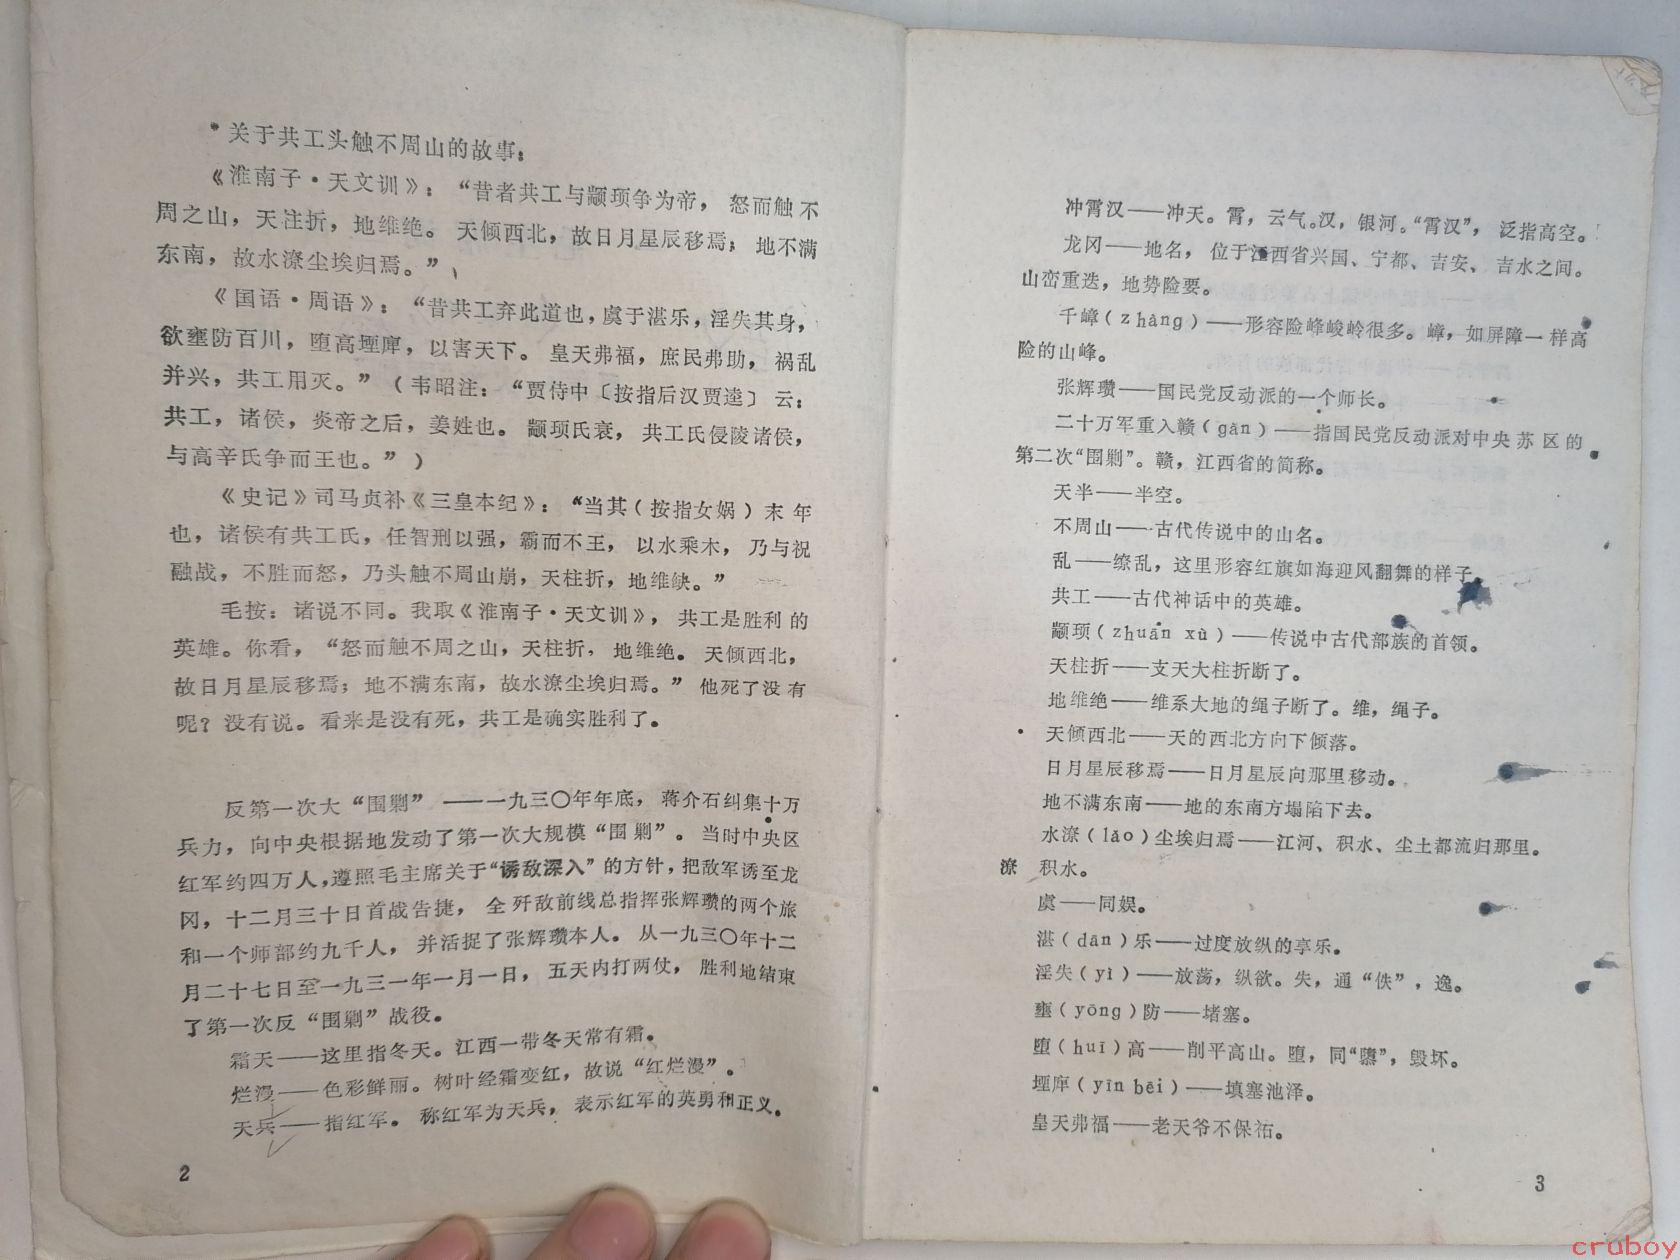 *关于共工头触不周山的故事：
《淮南子·天文训》：“昔者共工与颛顼争为帝，怒而触不
周之山，天柱折，地维绝。天倾西北，故日月星辰移焉；地不满
东南，故水潦尘埃归焉。”
《国语·周语》：“昔共工弃此道也，虞于湛乐，淫失其身，
欲壅防百川，堕高堙庳，以害天下。皇天弗福，庶民弗助，祸乱
并兴，共工用灭。”（韦昭注：“贾侍中〔按指后汉贾逵〕云：
共工，诸侯，炎帝之后，姜姓也。颛顼氏衰，共工氏侵陵诸侯，
与高辛氏争而王也。”）
《史记》司马贞补《三皇本纪》：“当其（按指女娲）末年
也，诸侯有共工氏，任智刑以强，霸而不王，以水乘木，乃与祝
融战，不胜而怒，乃头触不周山崩，天柱折，地维缺。”
毛按：诸说不同。我取《淮南子·天文训》，共工是胜利的
英雄。你看，“怒而触不周之山，天柱折，地维绝。天倾西北，
故日月星辰移焉；地不满东南，故水潦尘埃归焉。”他死了没有
呢？没有说。看来是没有死，共工是确实胜利了。
反第一次大“围剿”——一九三〇年年底，蒋介石纠集十万
兵力，向中央根据地发动了第一次大规模“围剿”。当时中央区
红军约四万人，遵照毛主席关于“诱敌深入”的方针，把敌军诱至龙
冈，十二月三十日首战告捷，全歼敌前线总指挥张辉瓒的两个旅
和一个师部约九千人，并活捉了张辉瓒本人。从一九三〇年十二
月二十七日至一九三一年一月一日，五天内打两仗，胜利地结束
了第一次反“围剿”战役。
霜天——这里指冬天。江西一带冬天常有霜。
烂漫——色彩鲜丽。树叶经霜变红，故说“红烂漫”。
天兵——指红军。称红军为天兵，表示红军的英勇和正义。
2
冲霄汉——冲天。霄，云气。汉，银河。“霄汉”，泛指高空。
龙冈——地名，位于江西省兴国、宁都、吉安、吉水之间。
山峦重迭，地势险要。
千嶂（zhàng）——形容险峰峻岭很多。嶂，如屏障一样高
险的山峰。
张辉瓒——国民党反动派的一个师长。
二十万军重入赣（gàn）——指国民党反动派对中央苏区的
第二次“围剿”。赣，江西省的简称。
天半——半空。
不周山——古代传说中的山名。
乱——缭乱，这里形容红旗如海迎风翻舞的样子。
共工——古代神话中的英雄。
颛顼（zhuān xù）——传说中古代部族的首领。
天柱折——支天大柱折断了。
地维绝——维系大地的绳子断了。维，绳子。
天倾西北——天的西北方向下倾落。
日月星辰移焉——日月星辰向那里移动。
地不满东南——地的东南方塌陷下去。
水潦（lǎo）尘埃归焉——江河、积水、尘土都流归那里。
潦 积水。
虞——同娱。
湛（dān）乐——过度放纵的享乐。
淫失（yì）——放荡，纵欲。失，通“佚”，逸。
壅（yōng）防——堵塞。
堕（huī）高——削平高山。堕，同“隳”，毁坏。
堙庳（yīn bēi）——填塞池泽。
皇天弗福——老天爷不保祐。
3
cruboy